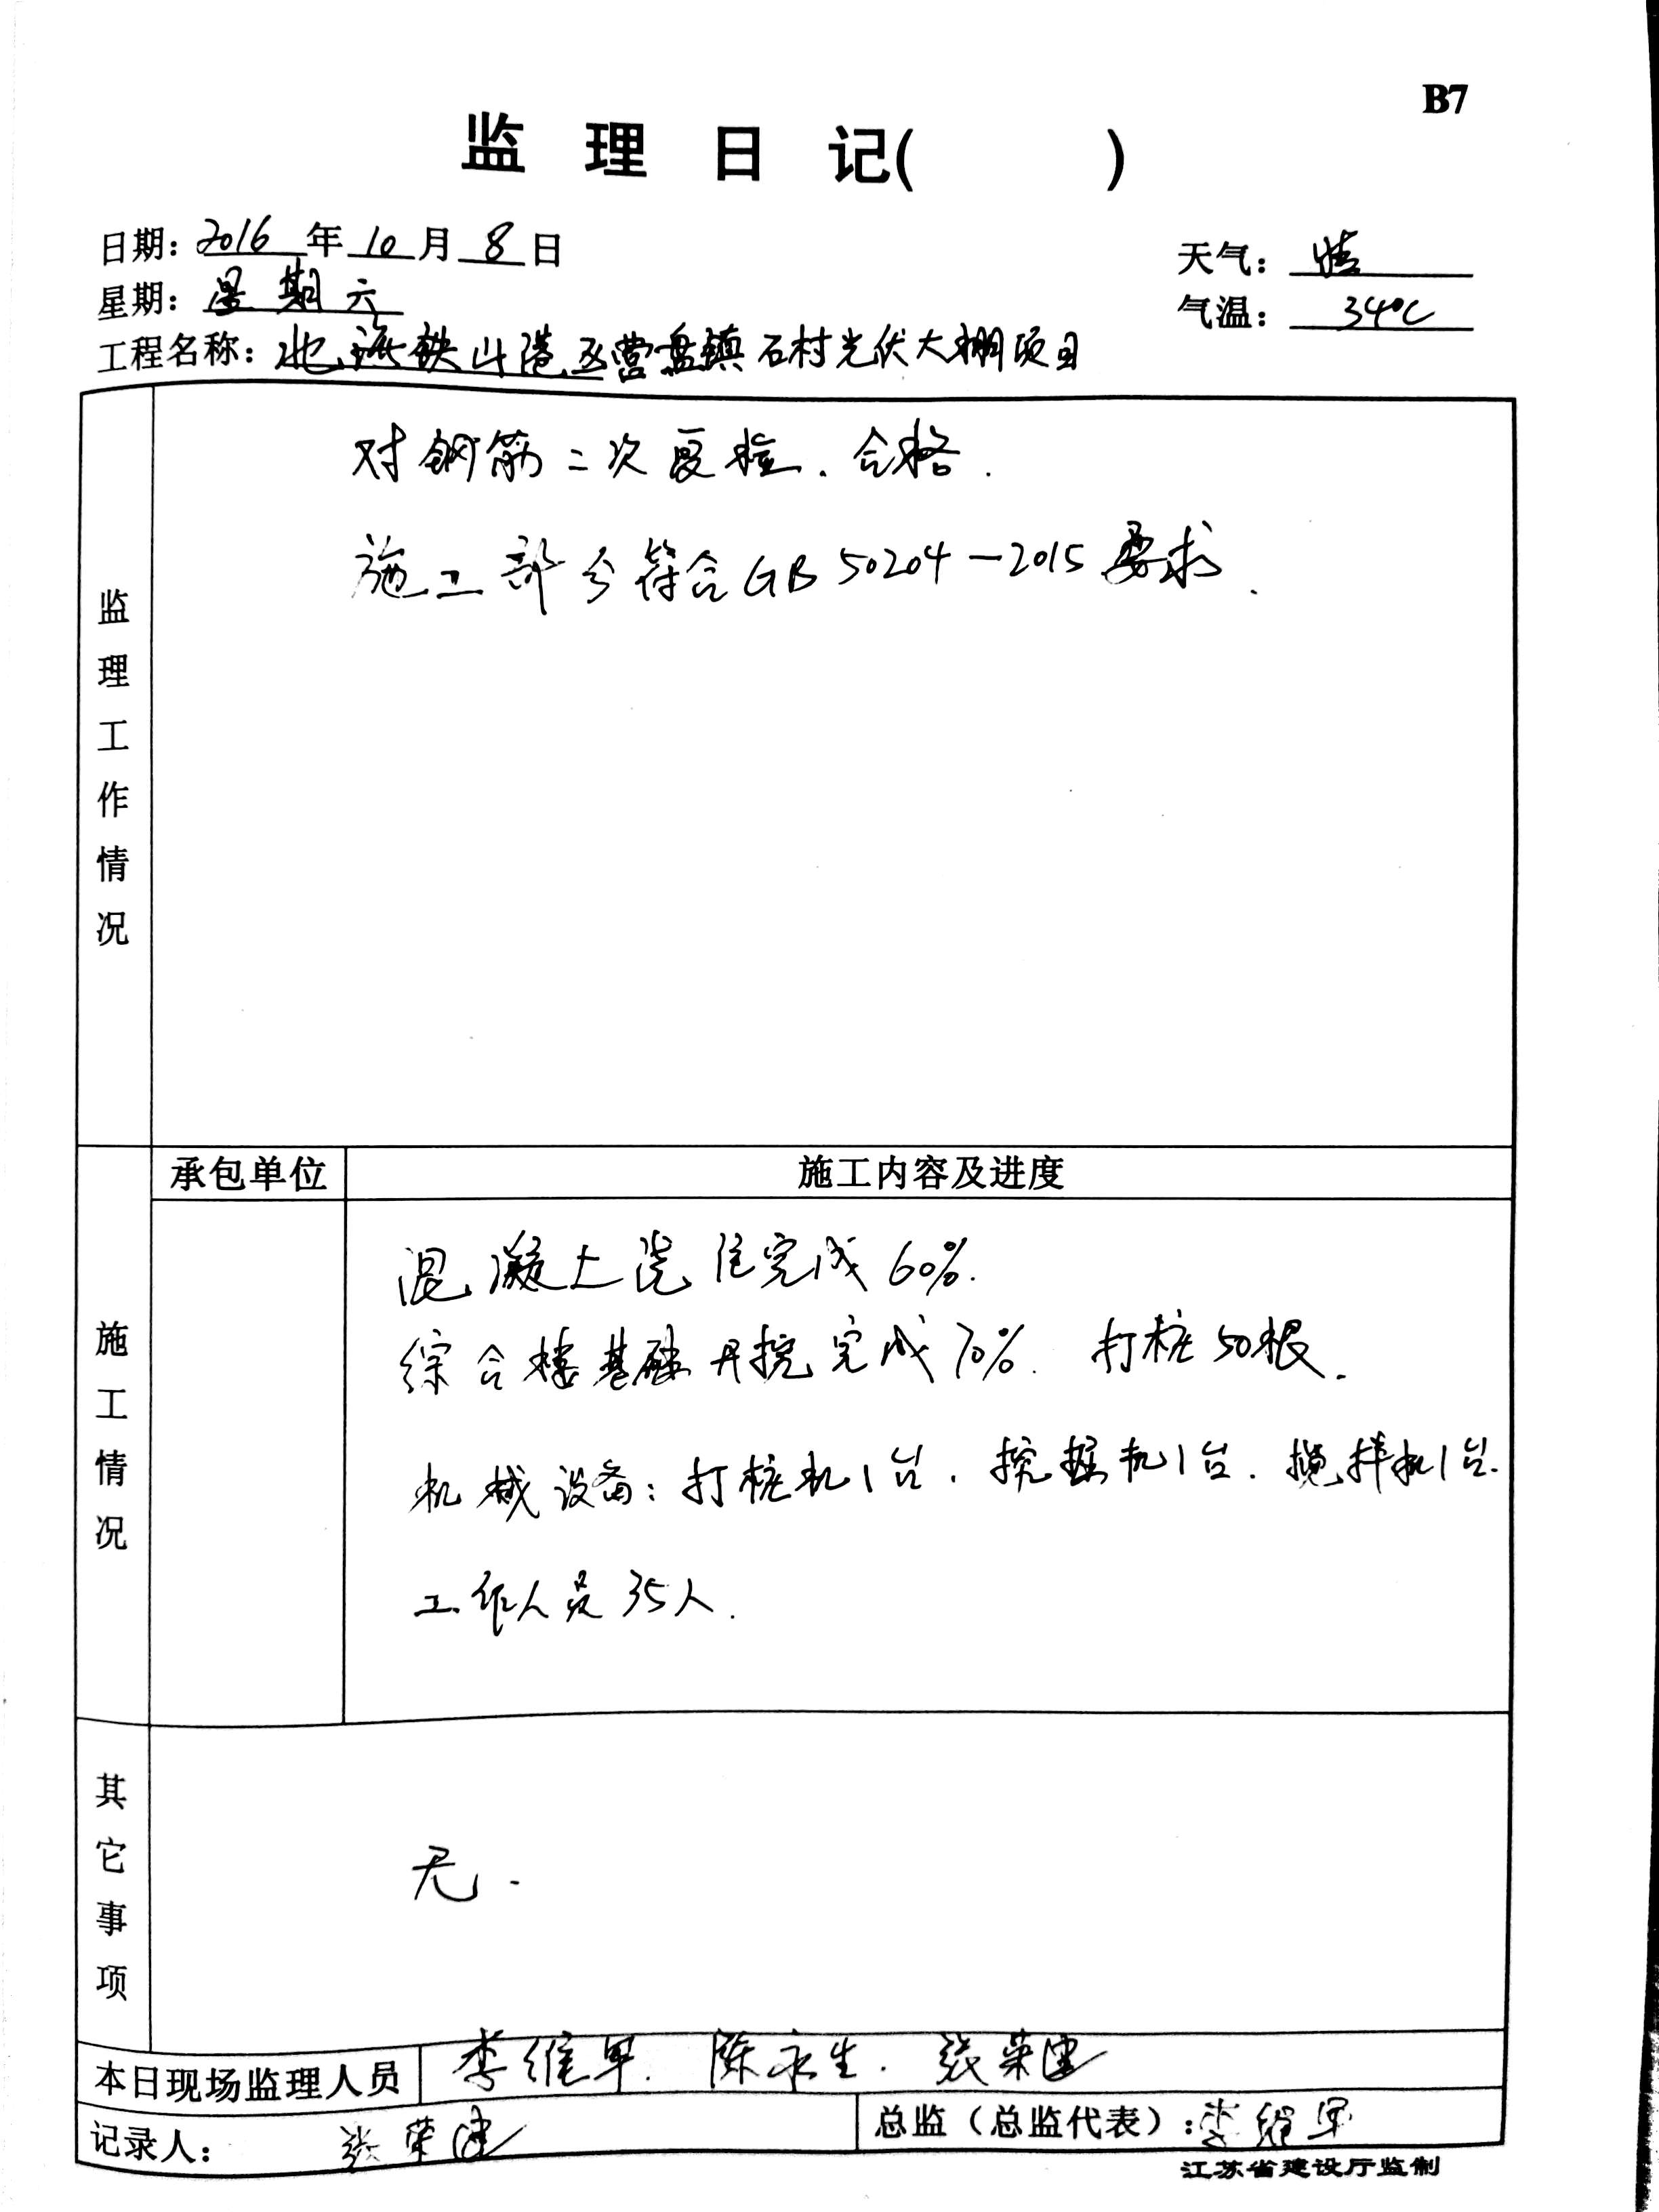 B7
监理日记(　　)
日期：2016年10月8日
天气：晴
星期：星期六
气温：34℃
工程名称：北海铁山港区营盘镇石村光伏大棚项目
监理工作情况
对钢筋二次复检.合格.
施工部分符合GB 50204-2015要求.
承包单位
施工内容及进度
施工情况
混凝土浇住完成60%.
综合楼基础开挖完成70%. 打桩50根.
机械设备：打桩机1台.挖掘机1台.搅拌机1台.
工作人员35人.
其它事项
无.
本日现场监理人员
李维军. 陈永生. 张荣建
记录人：张荣建
总监（总监代表）:李维军
江苏省建设厅监制